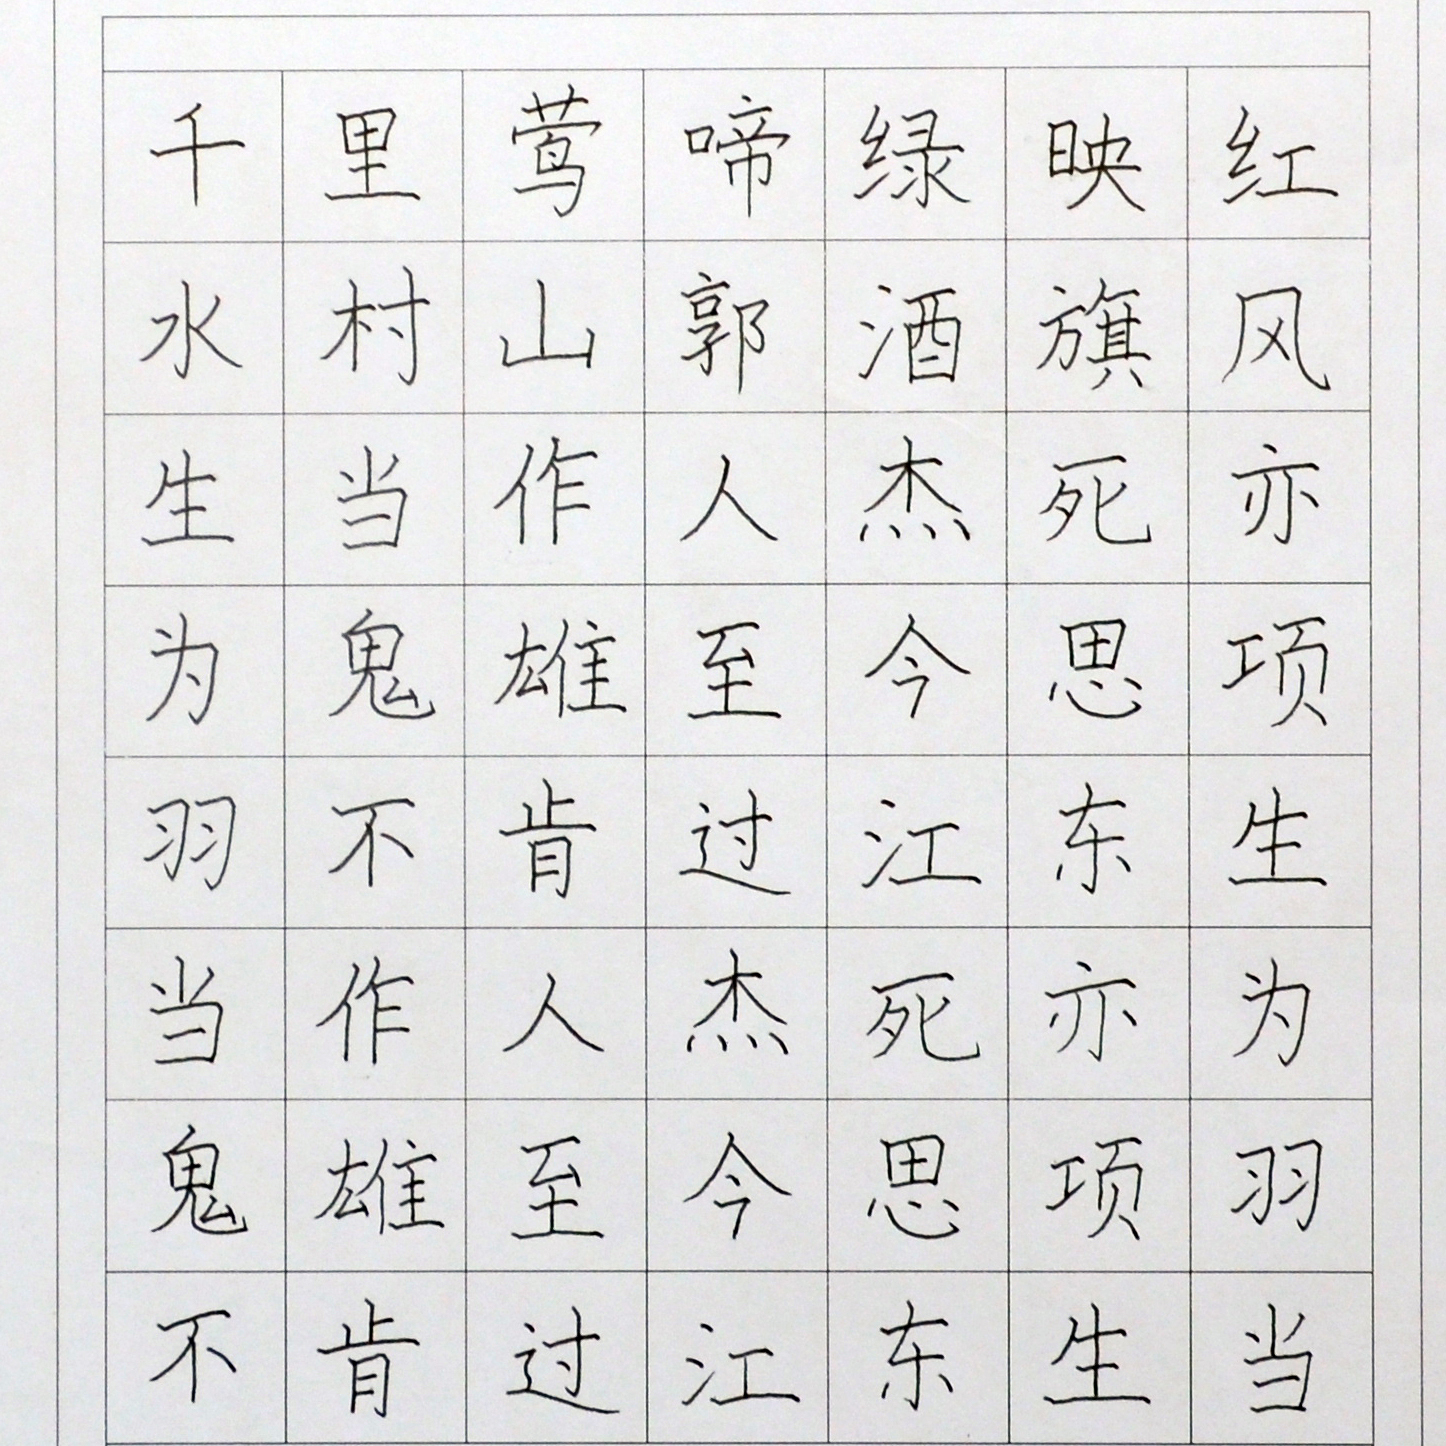 千里莺啼绿映红
水村山郭酒旗风
生当作人杰死亦
为鬼雄至今思项
羽不肯过江东生
当作人杰死亦为
鬼雄至今思项羽
不肯过江东生当